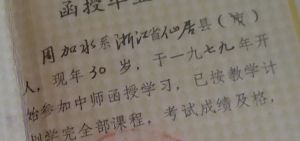 函授毕业
周加水系浙江省仙居县（）
人，现年30岁，于一九七九年开
始参加中师函授学习，已按教学计
划学完全部课程，考试成绩及格，